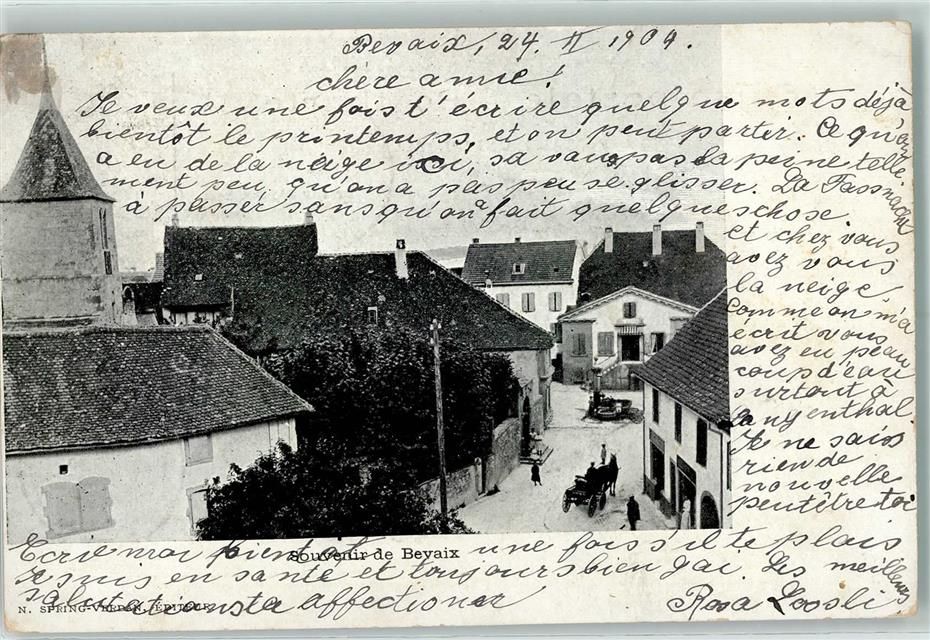 Bevaix, 24. II 1904.
chère amie!
Je veux une fois t'écrire quelque mots déjà
bientôt le printemps, et on peut partir. Ce qu'on
a eu de la neige ici, sa vau pas la peine telle
ment peu, qu'on a pas peu se glisser. La Fassnacht
à passer sans qu'on a fait quelques chose.
et chez vous
avez vous
la neige
Comme on m'a
écrit vous
avez eu peau
coup d'eau
surtout à
Langenthal.
Je ne sais
rien de
nouvelle
peutêtre toi
Ecrive moi bientôt une fois s'il te plais
Souvenir de Bevaix
Je suis en santé et toujours bien gai. Les meilleures
salutations ta affectioner
Rosa Loosli.
N. SPRING-VERDAN, ÉDITEUR